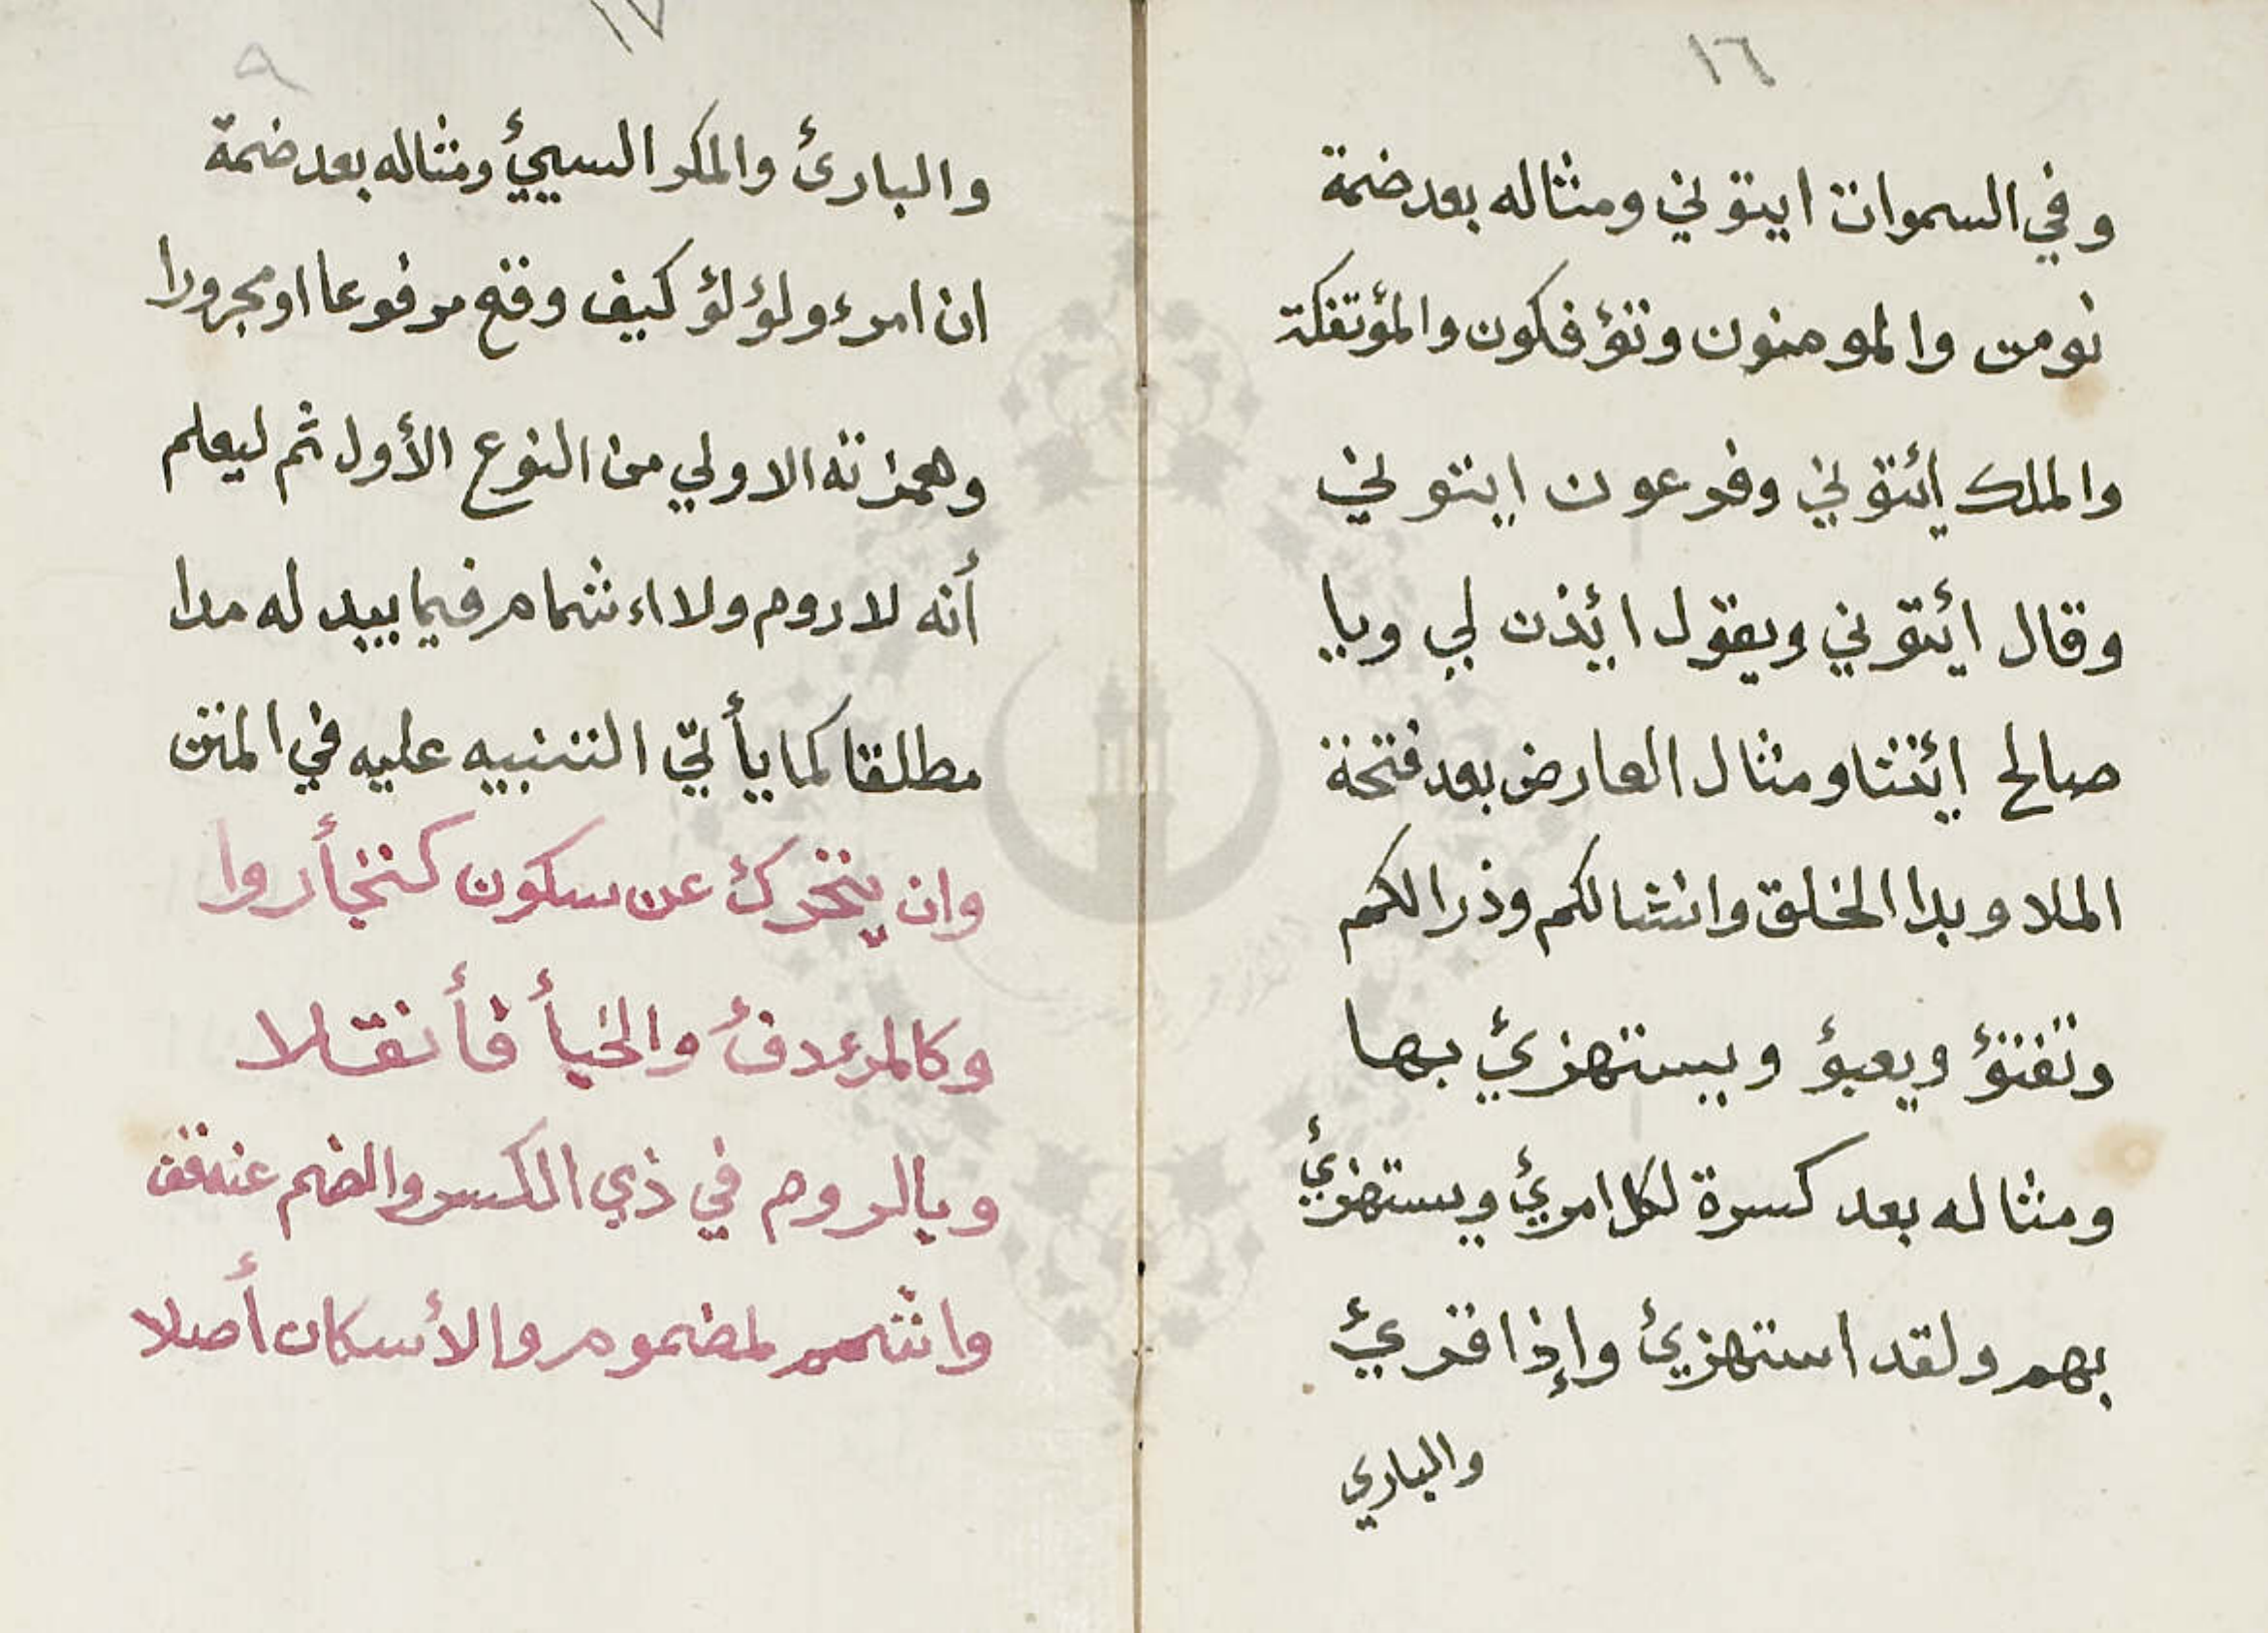 ١٦
وفي السموات ايتوني ومثاله بعد ضمة
نومن والمومنون وتؤفكون والمؤتفكة
والملك إئتوني وفرعون ايتوني
وقال ائتوني ويقول ائذن لي ويا
صالح ائتنا ومثال العارض بعد فتحة
الملا وبدا الخلق وانشالكم وذرالكم
وتفتؤ ويعبؤ ويستهزئ بها
ومثاله بعد كسرة لكل امرئ ويستهزئ
بهم ولقد استهزئ وإذا قرئ
والباري
١٧
٩
والبارئ والمكر السيئ ومثاله بعد ضمة
ان امرء ولؤلؤ كيف وقع مرفوعا او مجرورا
وهمزته الاولي من النوع الأول ثم ليعلم
أنه لا روم ولا اءشمام فيما يبدله مدا
مطلقا كما يأتي التنبيه عليه في المتن
وان يتحرك عن سكون كتجأروا
وكالمرء دفء والخبأ فأنقلا
وبالروم في ذي الكسر والضم عنه قف
واشمم لمضموم والأسكان أصلا